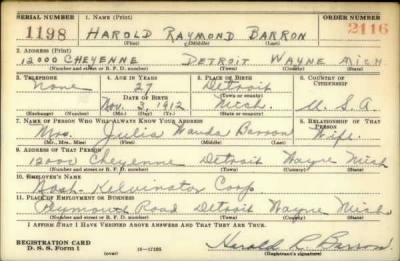 SERIAL NUMBER 1. NAME (Print) ORDER NUMBER
1198 HAROLD RAYMOND BARRON 2116
(First) (Middle) (Last)
2. ADDRESS (Print)
12000 CHEYENNE DETROIT WAYNE MICH
(Number and street or R. F. D. number) (Town) (County) (State)
3. TELEPHONE 4. AGE IN YEARS 5. PLACE OF BIRTH 6. COUNTRY OF CITIZENSHIP
None 27 Detroit
DATE OF BIRTH (Town or county)
Nov. 3, 1912 Mich. U. S. A.
(Exchange) (Number) (Mo.) (Day) (Yr.) (State or country)
7. NAME OF PERSON WHO WILL ALWAYS KNOW YOUR ADDRESS 8. RELATIONSHIP OF THAT PERSON
Mrs. Julia Wanda Barron Wife
(Mr., Mrs., Miss) (First) (Middle) (Last)
9. ADDRESS OF THAT PERSON
12000 Cheyenne Detroit Wayne Mich
(Number and street or R. F. D. number) (Town) (County) (State)
10. EMPLOYER'S NAME
Nash-Kelvinator Corp
11. PLACE OF EMPLOYMENT OR BUSINESS
Plymouth Road Detroit Wayne Mich
(Number and street or R. F. D. number) (Town) (County) (State)
I AFFIRM THAT I HAVE VERIFIED ABOVE ANSWERS AND THAT THEY ARE TRUE.
REGISTRATION CARD
D. S. S. Form 1 (over) Harold R Barron
(Registrant's signature)